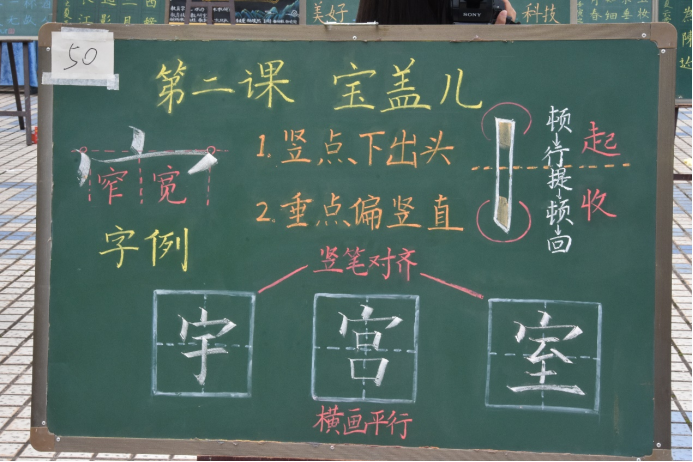 美好
科技
SONY
50
第二课 宝盖儿
1.竖点下出头
2.垂点偏竖直
窄 宽
顿行提顿回
起
收
字例
竖笔对齐
宇 宫 室
横画平行